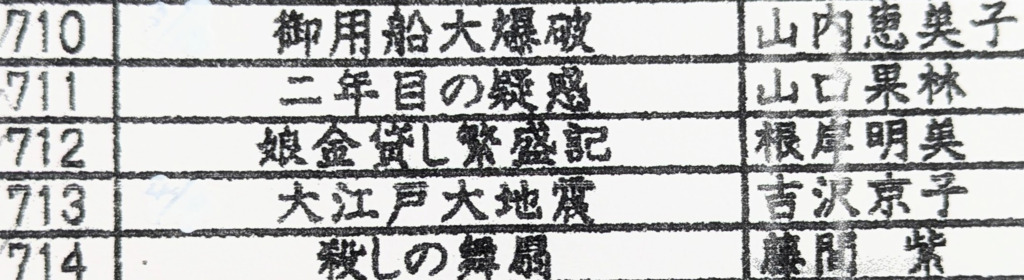 710 御用船大爆破 山内恵美子
711 二年目の疑惑 山口果林
712 娘金貸し繁盛記 根岸明美
713 大江戸大地震 吉沢京子
714 殺しの舞扇 藤間 紫